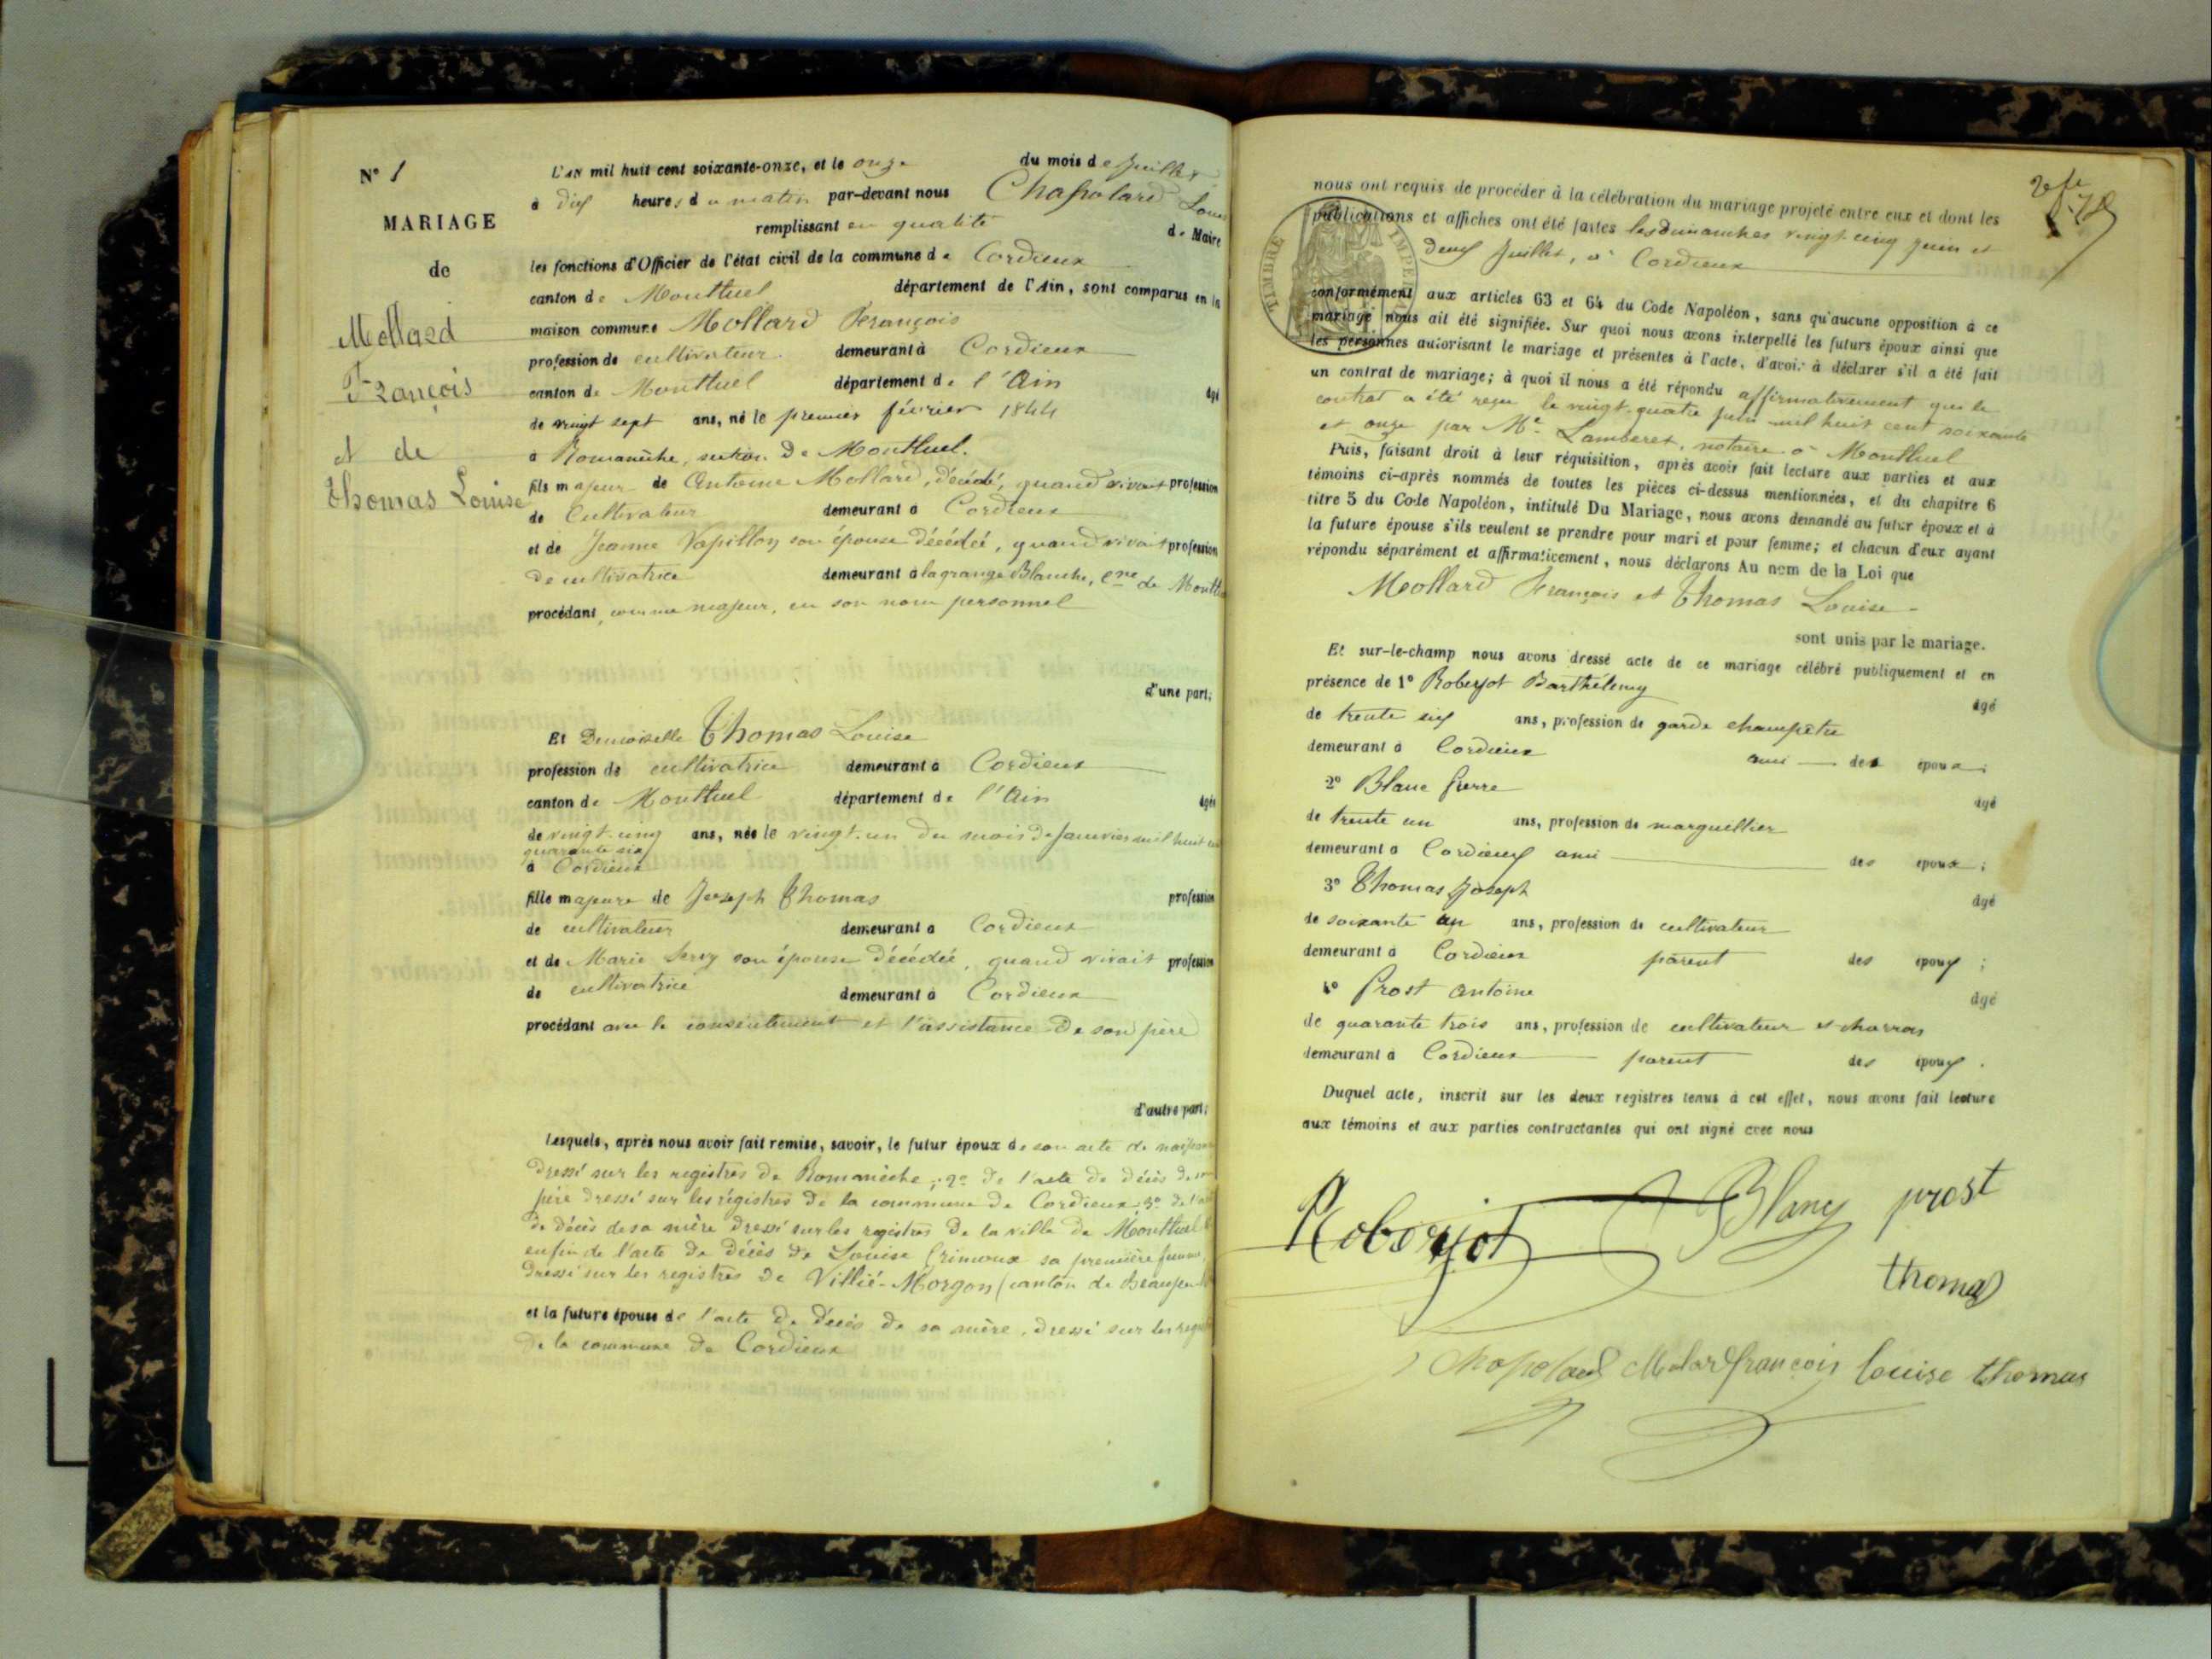 N° 1
MARIAGE
de
Mollard
François
et de
Thomas Louise
L'AN mil huit cent soixante-onze, et le onze du mois de Juillet
à dix heures du matin par-devant nous Chapolard Louis
remplissant en qualité de Maire
les fonctions d'Officier de l'état civil de la commune de Cordieux
canton de Montluel département de l'Ain, sont comparus en la
maison commune Mollard François
profession de cultivateur demeurant à Cordieux
canton de Montluel département de l'Ain âgé
de vingt sept ans, né le premier février 1844
à Romanèche, section de Montluel.
fils majeur de Antoine Mollard, décédé, quand vivait profession
de Cultivateur demeurant à Cordieux
et de Jeanne Papillon son épouse décédée, quand vivait profession
de cultivatrice demeurant à la grange Blanche, Cne de Montluel
procédant comme majeur, en son nom personnel
d'une part;
Et Demoiselle Thomas Louise
profession de cultivatrice demeurant à Cordieux
canton de Montluel département de l'Ain âgée
de vingt-cinq ans, née le vingt-un du mois de Janvier mil huit cent
quarante six
à Cordieux
fille majeure de Joseph Thomas profession
de cultivateur demeurant à Cordieux
et de Marie Servy son épouse décédée, quand vivait profession
de cultivatrice demeurant à Cordieux
procédant avec le consentement et l'assistance de son père
d'autre part;
Lesquels, après nous avoir fait remise, savoir, le futur époux de son acte de naissance
dressé sur les registres de Romanèche; 2° de l'acte de décès de son
père dressé sur les régistres de la commune de Cordieux; 3° de l'acte
de décès de sa mère dressé sur les registres de la ville de Montluel
enfin de l'acte de décès de Louise Crimoux sa première femme,
dressé sur les registres de Villié-Morgon (canton de Beaujeu
et la future épouse de l'acte de décès de sa mère, dressé sur les registres
de la commune de Cordieux
nous ont requis de procéder à la célébration du mariage projeté entre eux et dont les
publications et affiches ont été faites les dimanches vingt-cinq juin et
deux Juillet, à Cordieux
TIMBRE IMPERIAL
conformément aux articles 63 et 64 du Code Napoléon, sans qu'aucune opposition à ce
mariage nous ait été signifiée. Sur quoi nous avons interpellé les futurs époux ainsi que
les personnes autorisant le mariage et présentes à l'acte, d'avoir à déclarer s'il a été fait
un contrat de mariage; à quoi il nous a été répondu affirmativement que le
contrat a été reçu le vingt-quatre juin mil huit cent soixante
et onze par Me Lamberet, notaire à Montluel
Puis, faisant droit à leur réquisition, après avoir fait lecture aux parties et aux
témoins ci-après nommés de toutes les pièces ci-dessus mentionnées, et du chapitre 6
titre 5 du Code Napoléon, intitulé Du Mariage, nous avons demandé au futur époux et à
la future épouse s'ils veulent se prendre pour mari et pour femme; et chacun d'eux ayant
répondu séparément et affirmativement, nous déclarons Au nom de la Loi que
Mollard François et Thomas Louise
sont unis par le mariage.
Et sur-le-champ nous avons dressé acte de ce mariage célébré publiquement et en
présence de 1° Roberjot Barthélemy âgé
de trente six ans, profession de garde champêtre
demeurant à Cordieux ami des époux;
2° Blanc Pierre âgé
de trente un ans, profession de marguillier
demeurant à Cordieux ami des époux;
3° Thomas Joseph âgé
de soixante un ans, profession de cultivateur
demeurant à Cordieux parent des époux;
4° Prost Antoine âgé
de quarante trois ans, profession de cultivateur et charron
demeurant à Cordieux parent des époux.
Duquel acte, inscrit sur les deux registres tenus à cet effet, nous avons fait lecture
aux témoins et aux parties contractantes qui ont signé avec nous
Roberjot Blanc prost
thomas
Chapolard Molard françois louise thomas